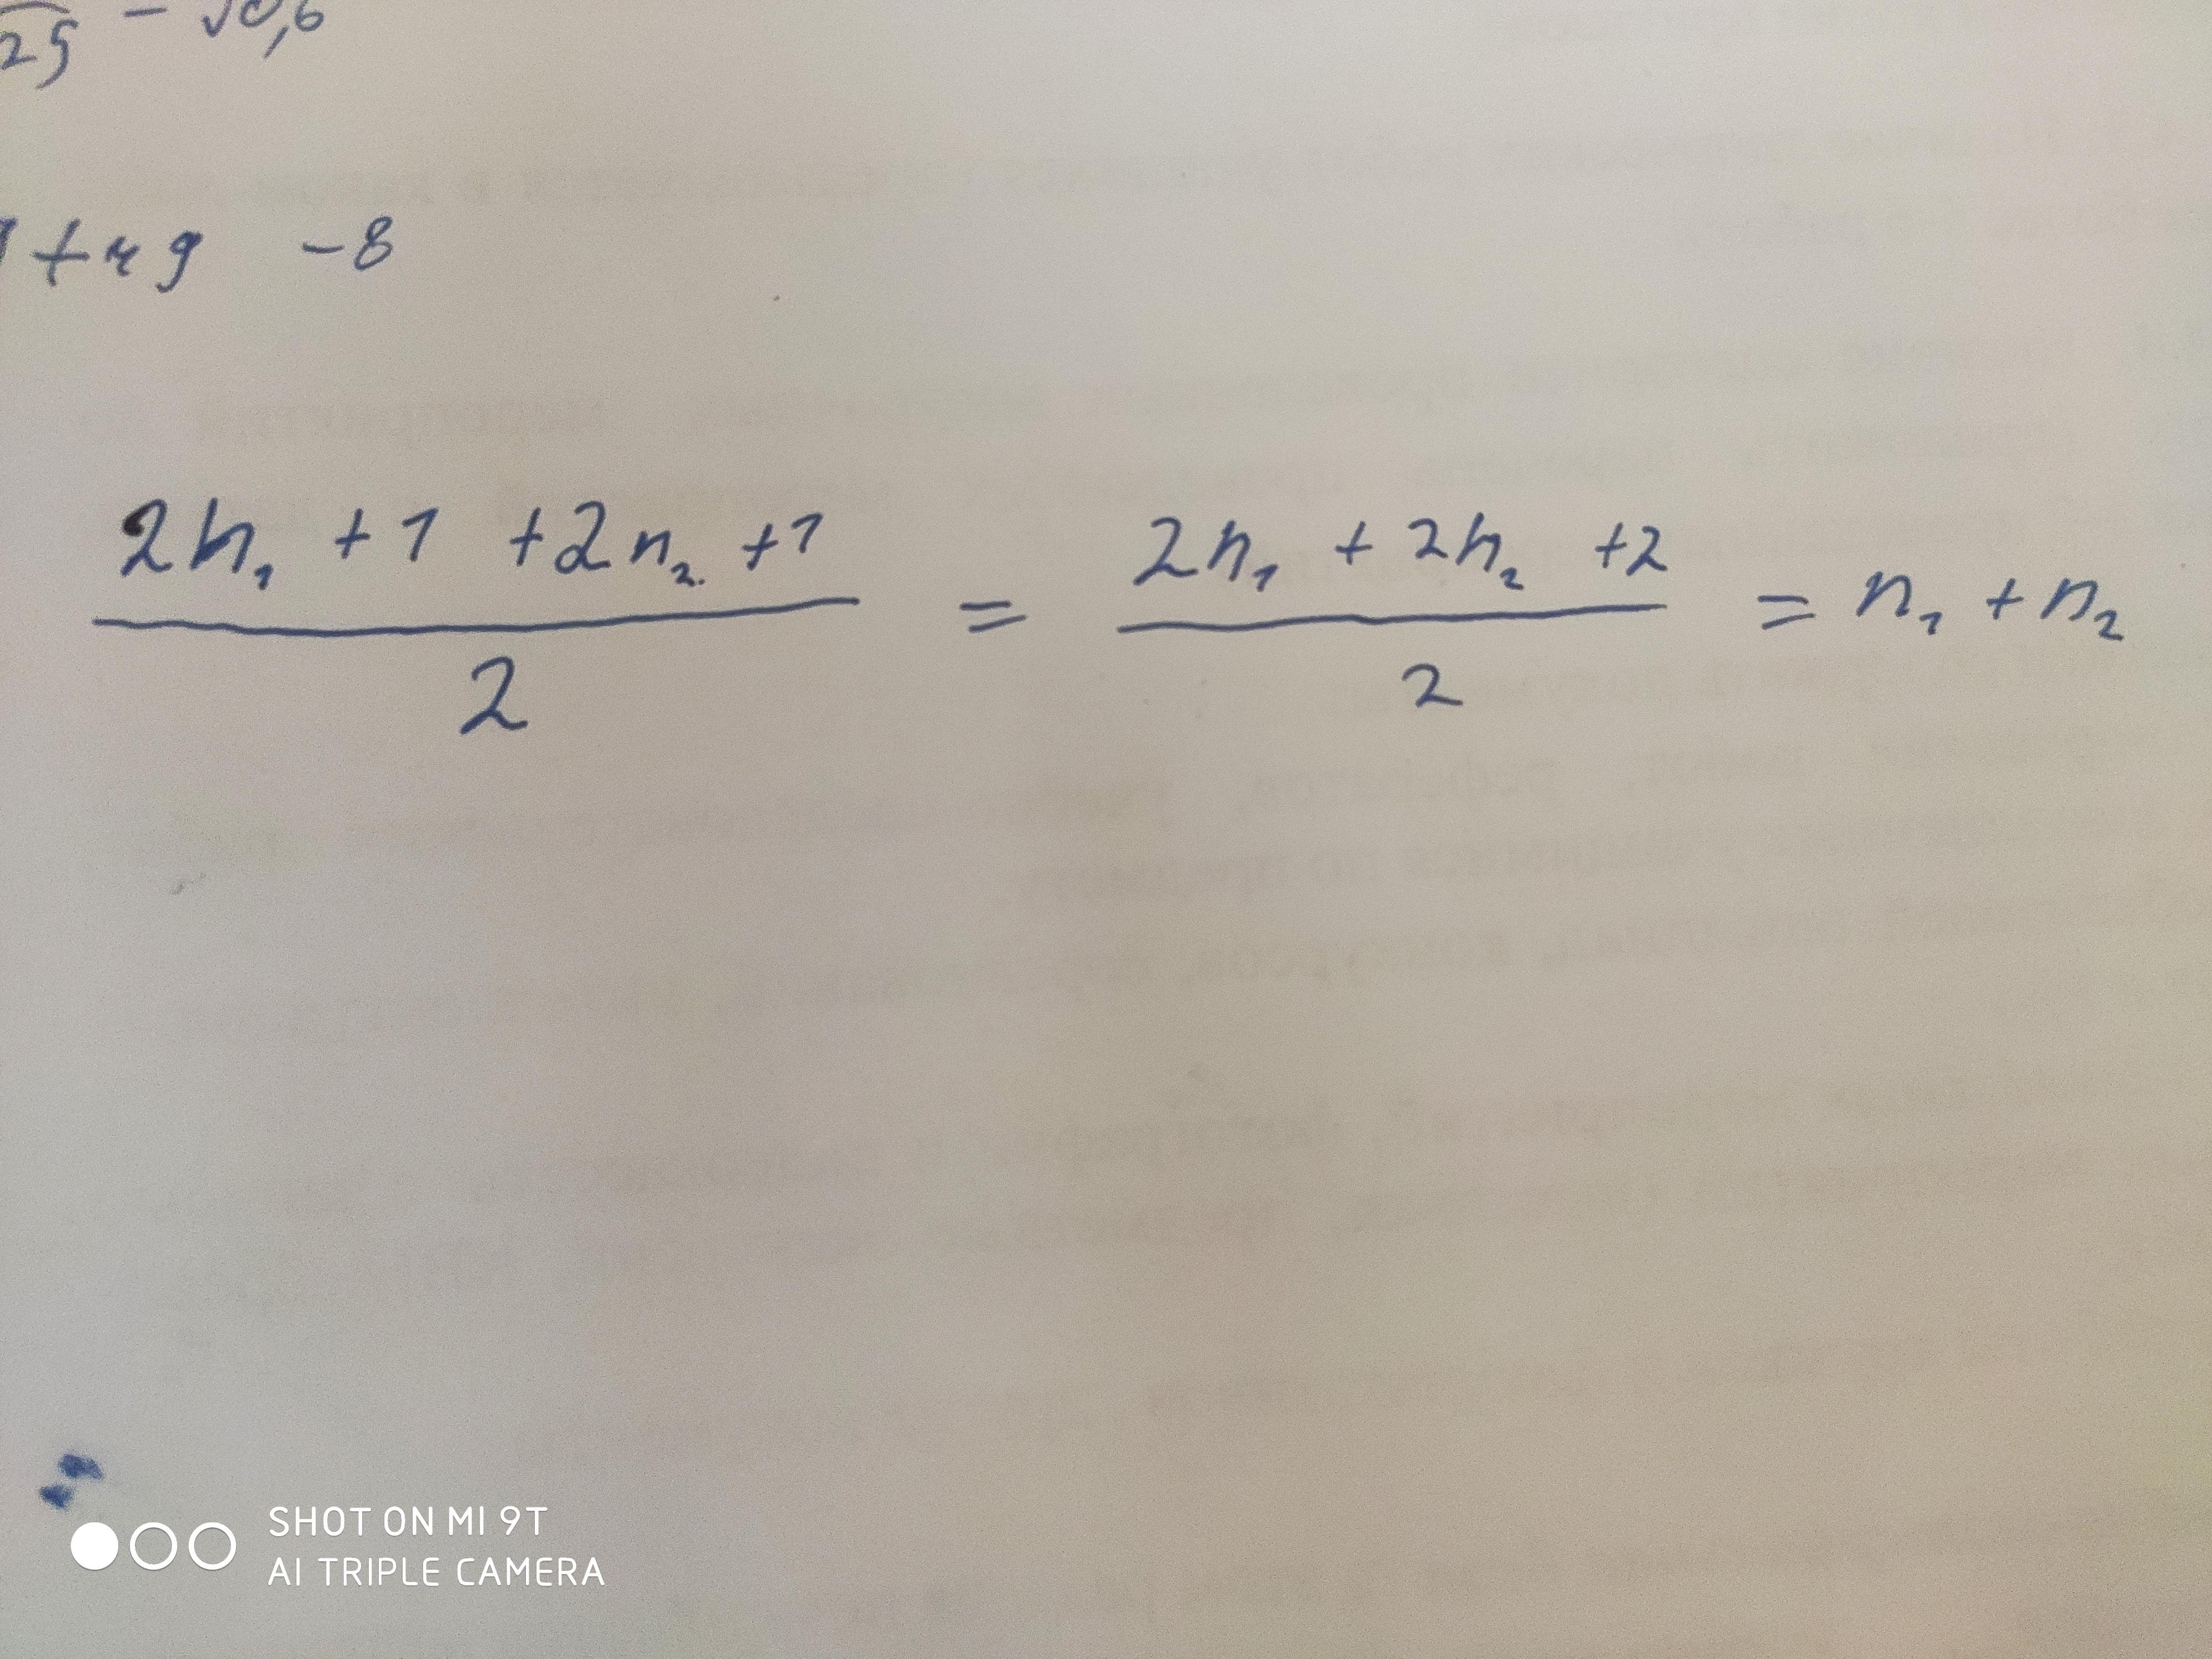 25 - √0,6
+ 49 - 8
(2n₁ + 1 + 2n₂ + 1)/2 = (2n₁ + 2n₂ + 2)/2 = n₁ + n₂
SHOT ON MI 9T
AI TRIPLE CAMERA